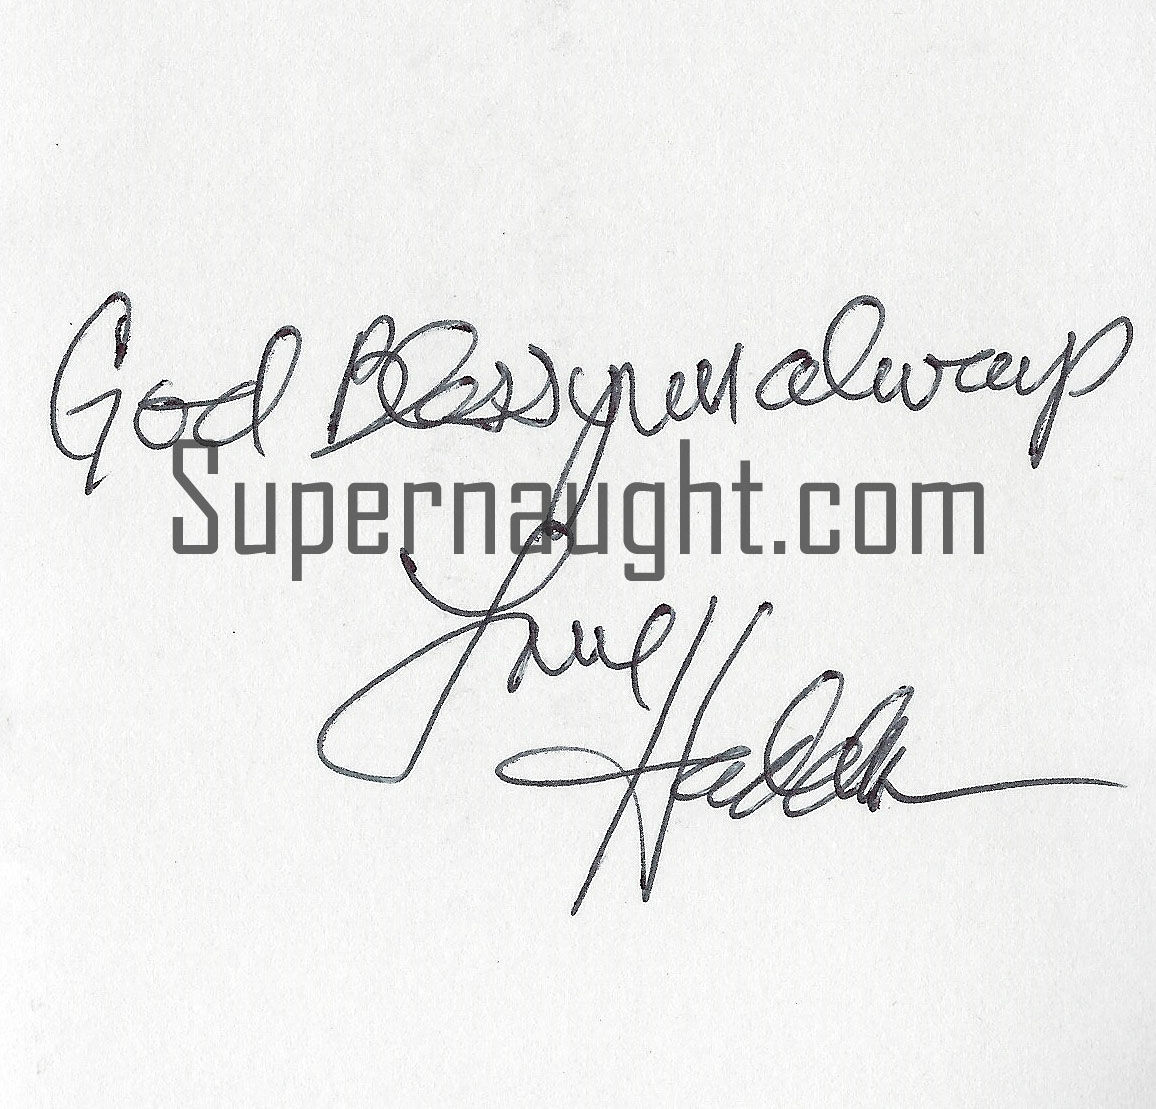 God Bless you always
Supernaught.com
Love